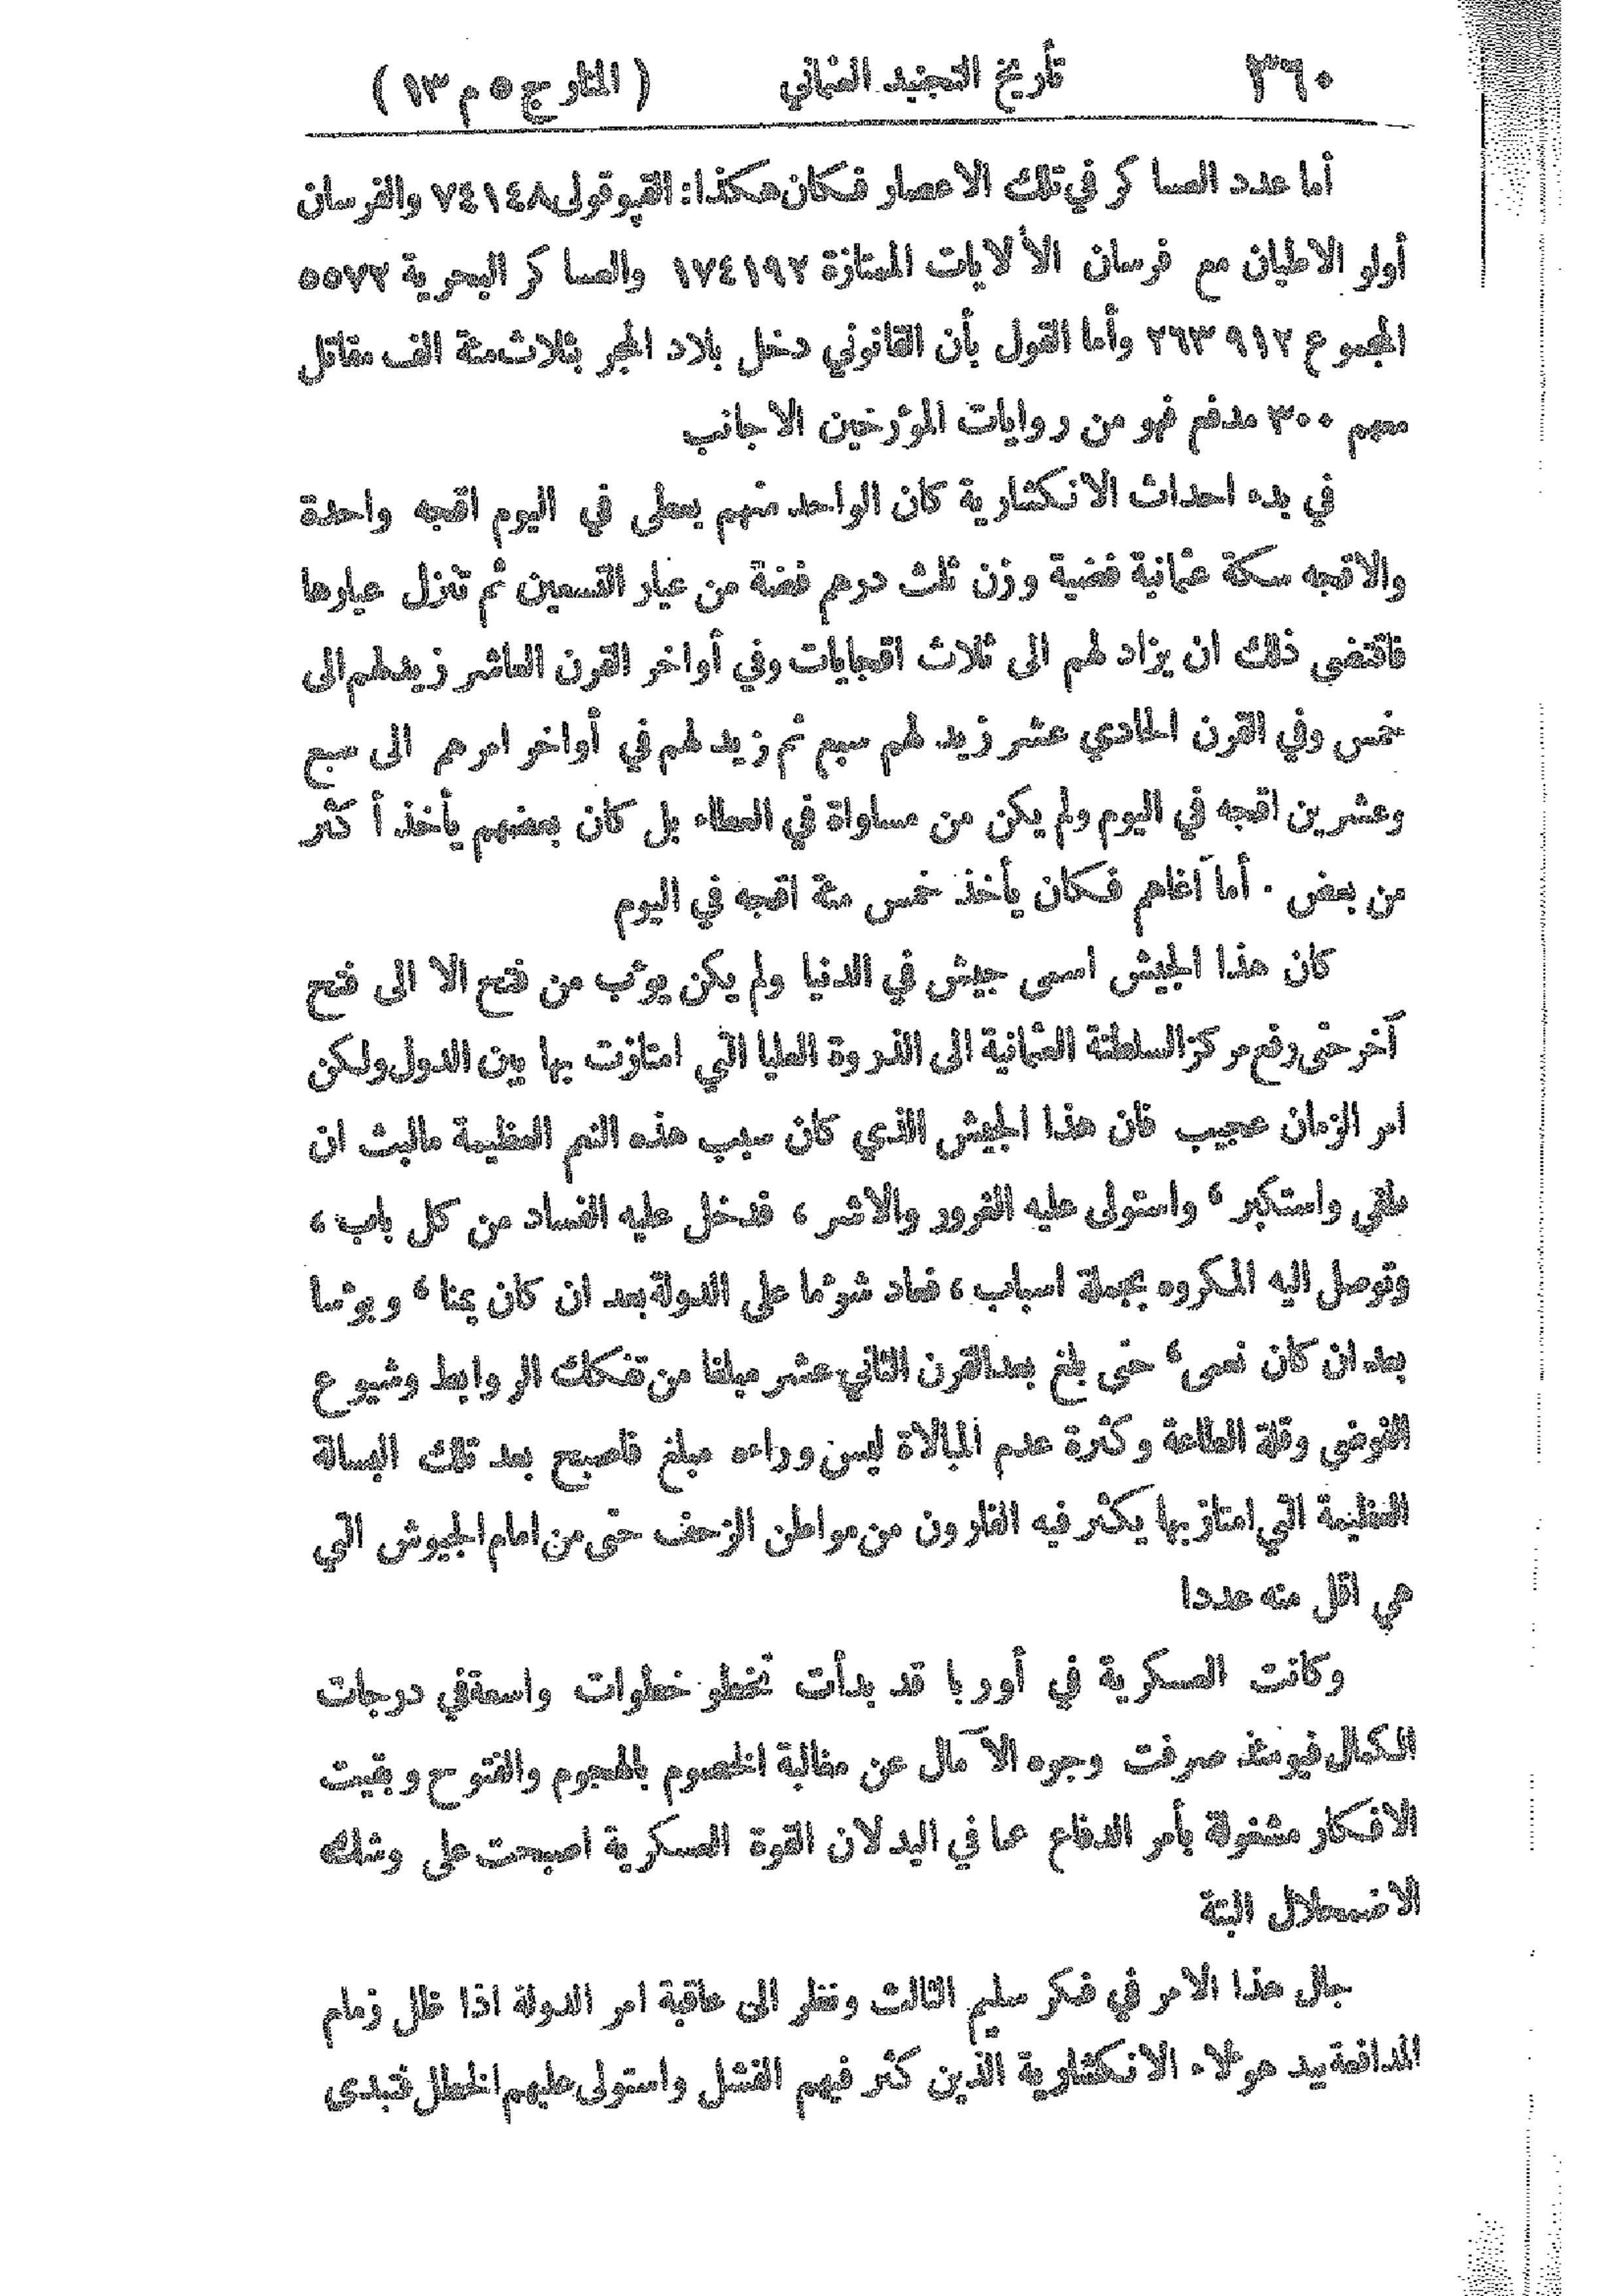 ٣٦٠ تأريخ التجنيد العثماني ( المنار ج ٥ م ١٣ )
أما عدد العساكر في تلك الاعصار فكان هكذا: القپوقولى ٧٤١٤٨ والفرسان
أولو الاطيان مع فرسان الألايات الممتازة ١٧٤١٩٢ والعساكر البحرية ٥٥٧٢
المجموع ٢٦٣٩١٢ وأما القول بأن القانوني دخل بلاد المجر بثلاث مئة الف مقاتل
معهم ٣٠٠ مدفع فهو من روايات المؤرخين الاجانب
في بدء احداث الانكشارية كان الواحد منهم يعطى في اليوم اقجه واحدة
والاقجه سكة عثمانية فضية وزن ثلث درهم فضة من عيار التسعين ثم تنزل عيارها
فاقتضى ذلك ان يزاد لهم الى ثلاث اقجايات وفي أواخر القرن العاشر زيد لهم الى
خمس وفي القرن الحادي عشر زيد لهم سبع ثم زيد لهم في أواخر امرهم الى سبع
وعشرين اقجه في اليوم ولم يكن من مساواة في العطاء بل كان بعضهم يأخذ أكثر
من بعض . أما آغاهم فكان يأخذ خمس مئة اقجه في اليوم
كان هذا الجيش اسمى جيش في الدنيا ولم يكن يؤب من فتح الا الى فتح
آخر حتى رفع مركز السلطنة العثمانية الى الذروة العليا التي امتازت بها بين الدول ولكن
امر الزمان عجيب فان هذا الجيش الذي كان سبب هذه النعم العظيمة مالبث ان
طغي واستكبر ، واستولى عليه الغرور والاشر ، فدخل عليه الفساد من كل باب ،
وتوصل اليه المكروه بجملة اسباب ، فعاد شؤما على الدولة بعد ان كان يمنا ، وبؤسا
بعد ان كان نعمى ، حتى بلغ بعد القرن الثاني عشر مبلغا من تفكك الروابط وشيوع
الفوضى وقلة الطاعة وكثرة عدم المبالاة ليس وراءه مبلغ فاصبح بعد تلك البسالة
العظيمة التي امتاز بها يكثر فيه الفارون من مواطن الزحف حتى من امام الجيوش التي
هي اقل منه عددا
وكانت العسكرية في أوربا قد بدأت تخطو خطوات واسعة في درجات
الكمال فيومئذ صرفت وجوه الآمال عن مغالبة الخصوم بالهجوم والفتوح وبقيت
الافكار مشغولة بأمر الدفاع عما في اليد لان القوة العسكرية اصبحت على وشك
الاضمحلال البتة
جال هذا الامر في فكر سليم الثالث ونظر الى عاقبة امر الدولة اذا ظل زمام
المدافعة بيد هؤلاء الانكشارية الذين كثر فيهم الفشل واستولى عليهم الخطل فتبدى